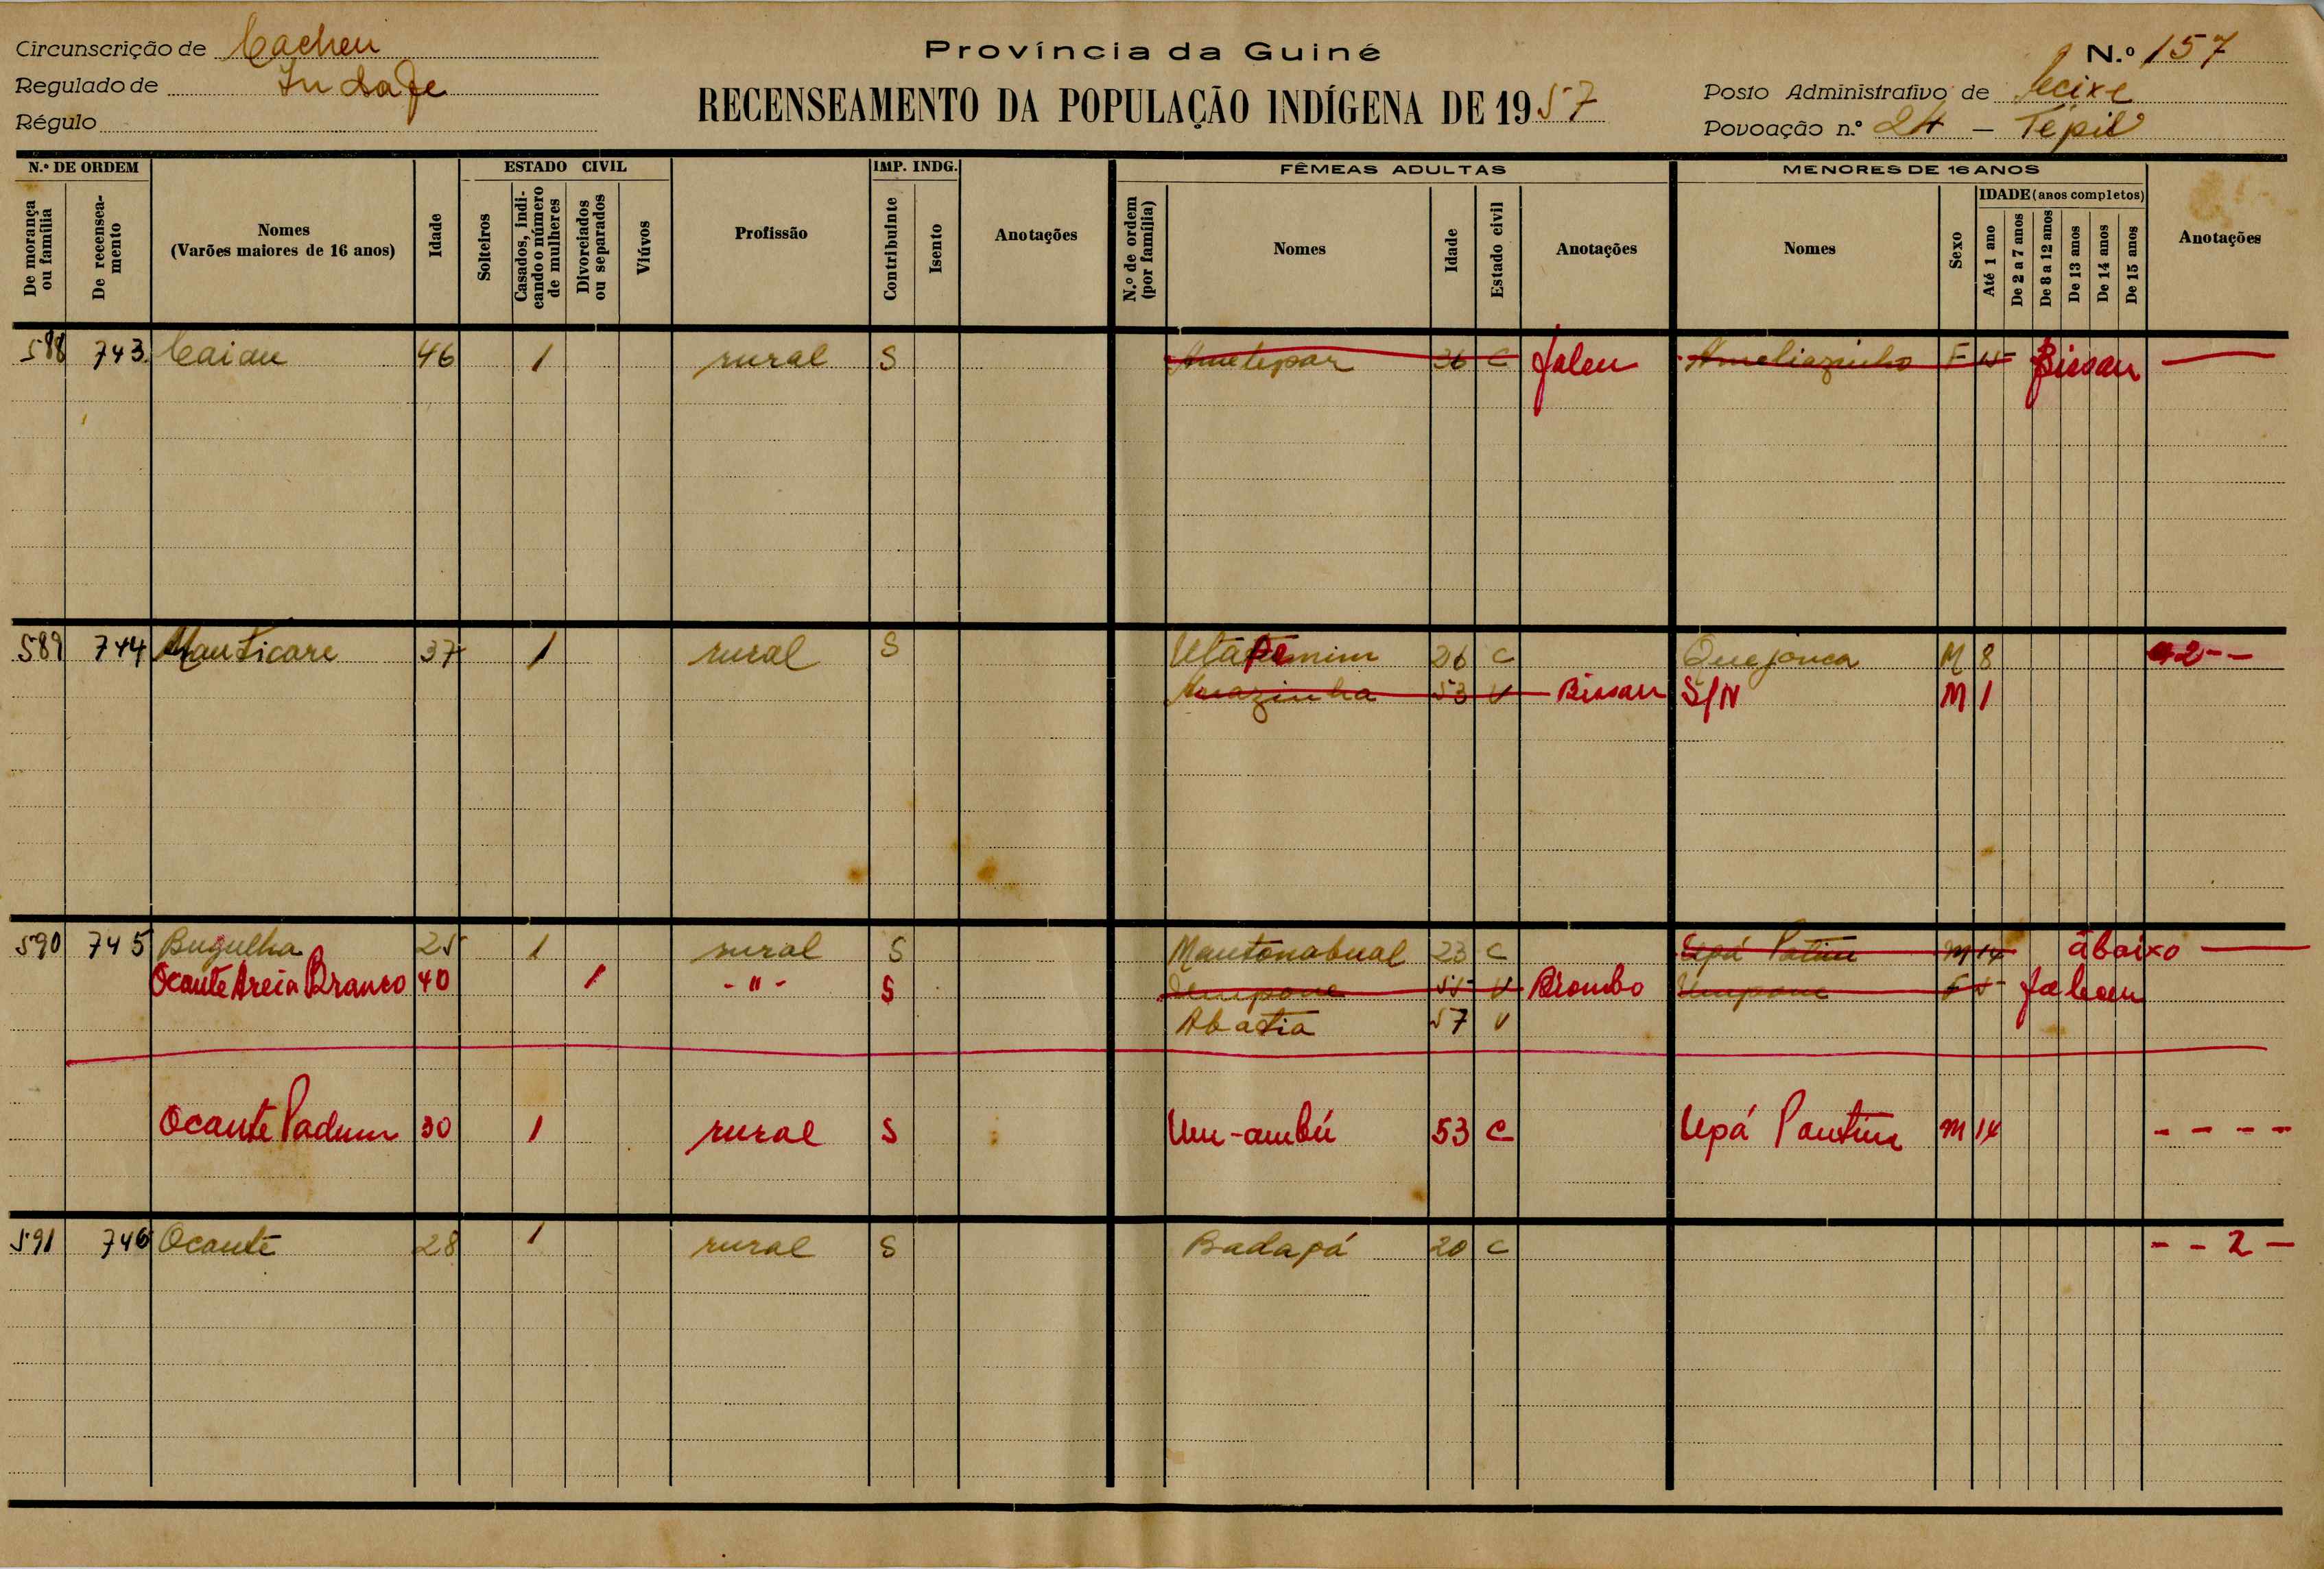 Circunscrição de Cacheu
Regulado de
Régulo
Província da Guiné
RECENSEAMENTO DA POPULAÇÃO INDÍGENA DE 1957
N.º 157
Posto Administrativo de
Povoação n.º 24 –
N.º DE ORDEM
De morança ou família
De recensea-mento
Nomes
(Varões maiores de 16 anos)
Idade
ESTADO CIVIL
Solteiros
Casados, indi-cando o número de mulheres
Divorciados ou separados
Viúvos
Profissão
IMP. INDG.
Contribuinte
Isento
Anotações
FÊMEAS ADULTAS
N.º de ordem (por família)
Nomes
Idade
Estado civil
Anotações
MENORES DE 16 ANOS
Nomes
Sexo
IDADE (anos completos)
Até 1 ano
De 2 a 7 anos
De 8 a 12 anos
De 13 anos
De 14 anos
De 15 anos
Anotações
588 743 Caiau 46 1 rural S Ametepar 26 C Faleu Ameliazinha F 15 Bissau —
589 744 Manticare 37 1 rural S 26 C Quejonca M 8 2 - -
53 V Bissau S/N M 1
590 745 Bugulha 25 1 rural S Mantonabual 23 C Upá Patim M 14 abaixo —
Ocante Areia Branco 40 1 - " - S Umpone 55 V Biombo Umpone F 5
Abatia 57 V
Ocante Padum 30 1 rural S Um-ambú 53 C Upá Pantim M 14 - - - -
591 746 Ocante 28 1 rural S Badapá 20 C - - 2 -